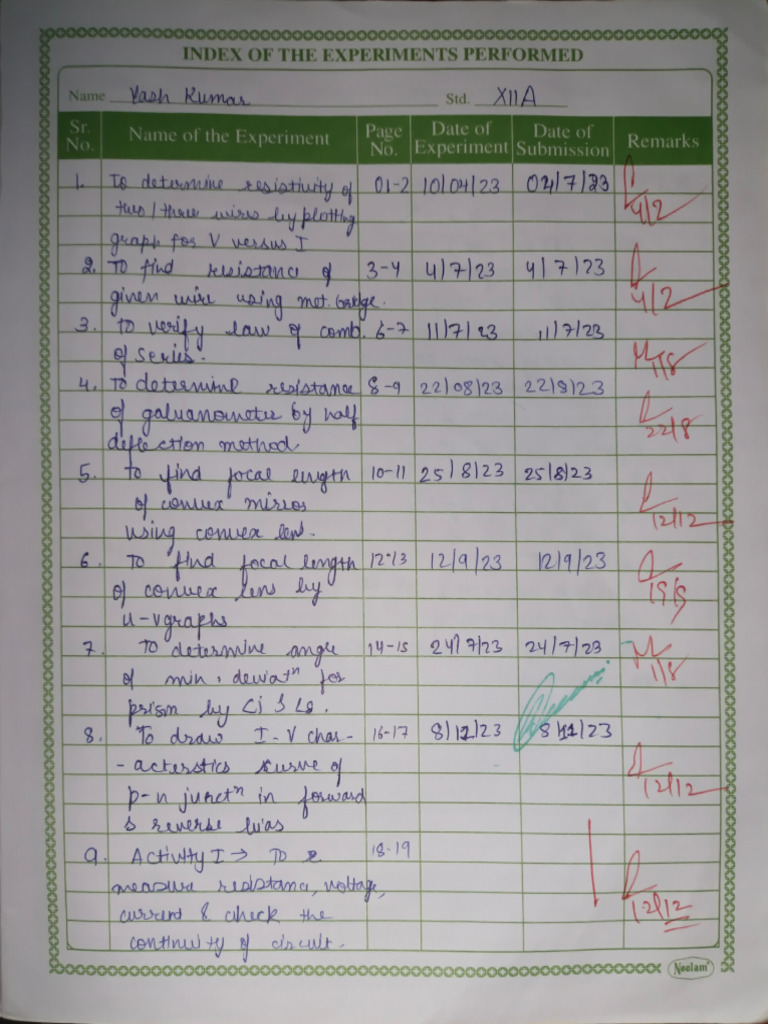 INDEX OF THE EXPERIMENTS PERFORMED
Name Yash Kumar Std. XIIA
Sr. No. Name of the Experiment Page No. Date of Experiment Date of Submission Remarks
1. To determine resistivity of 01-2 10/04/23 04/7/23
two/three wires by plotting 4/2
graph for V versus I
2. To find resistance of 3-4 4/7/23 4/7/23
given wire using met. bridge. 4/2
3. To verify law of comb. 6-7 11/7/23 11/7/23
of series. 1/8
4. To determine resistance 8-9 22/08/23 22/8/23
of galvanometer by half 22/8
deflection method
5. to find focal length 10-11 25/8/23 25/8/23
of convex mirror 12/12
using convex lens.
6. To find focal length 12-13 12/9/23 12/9/23
of convex lens by 15/9
u-v graphs
7. To determine angle 14-15 24/7/23 24/7/23
of min. deviatⁿ for 1/8
prism by ∠i & ∠δ.
8. To draw I-V char- 16-17 8/12/23 8/12/23
-acterstics curve of 12/12
p-n junctⁿ in forward
& reverse bias
9. Activity I → To 18-19
measure resistance, voltage,
current & check the 12/12
continuity of circuit.
Neelam